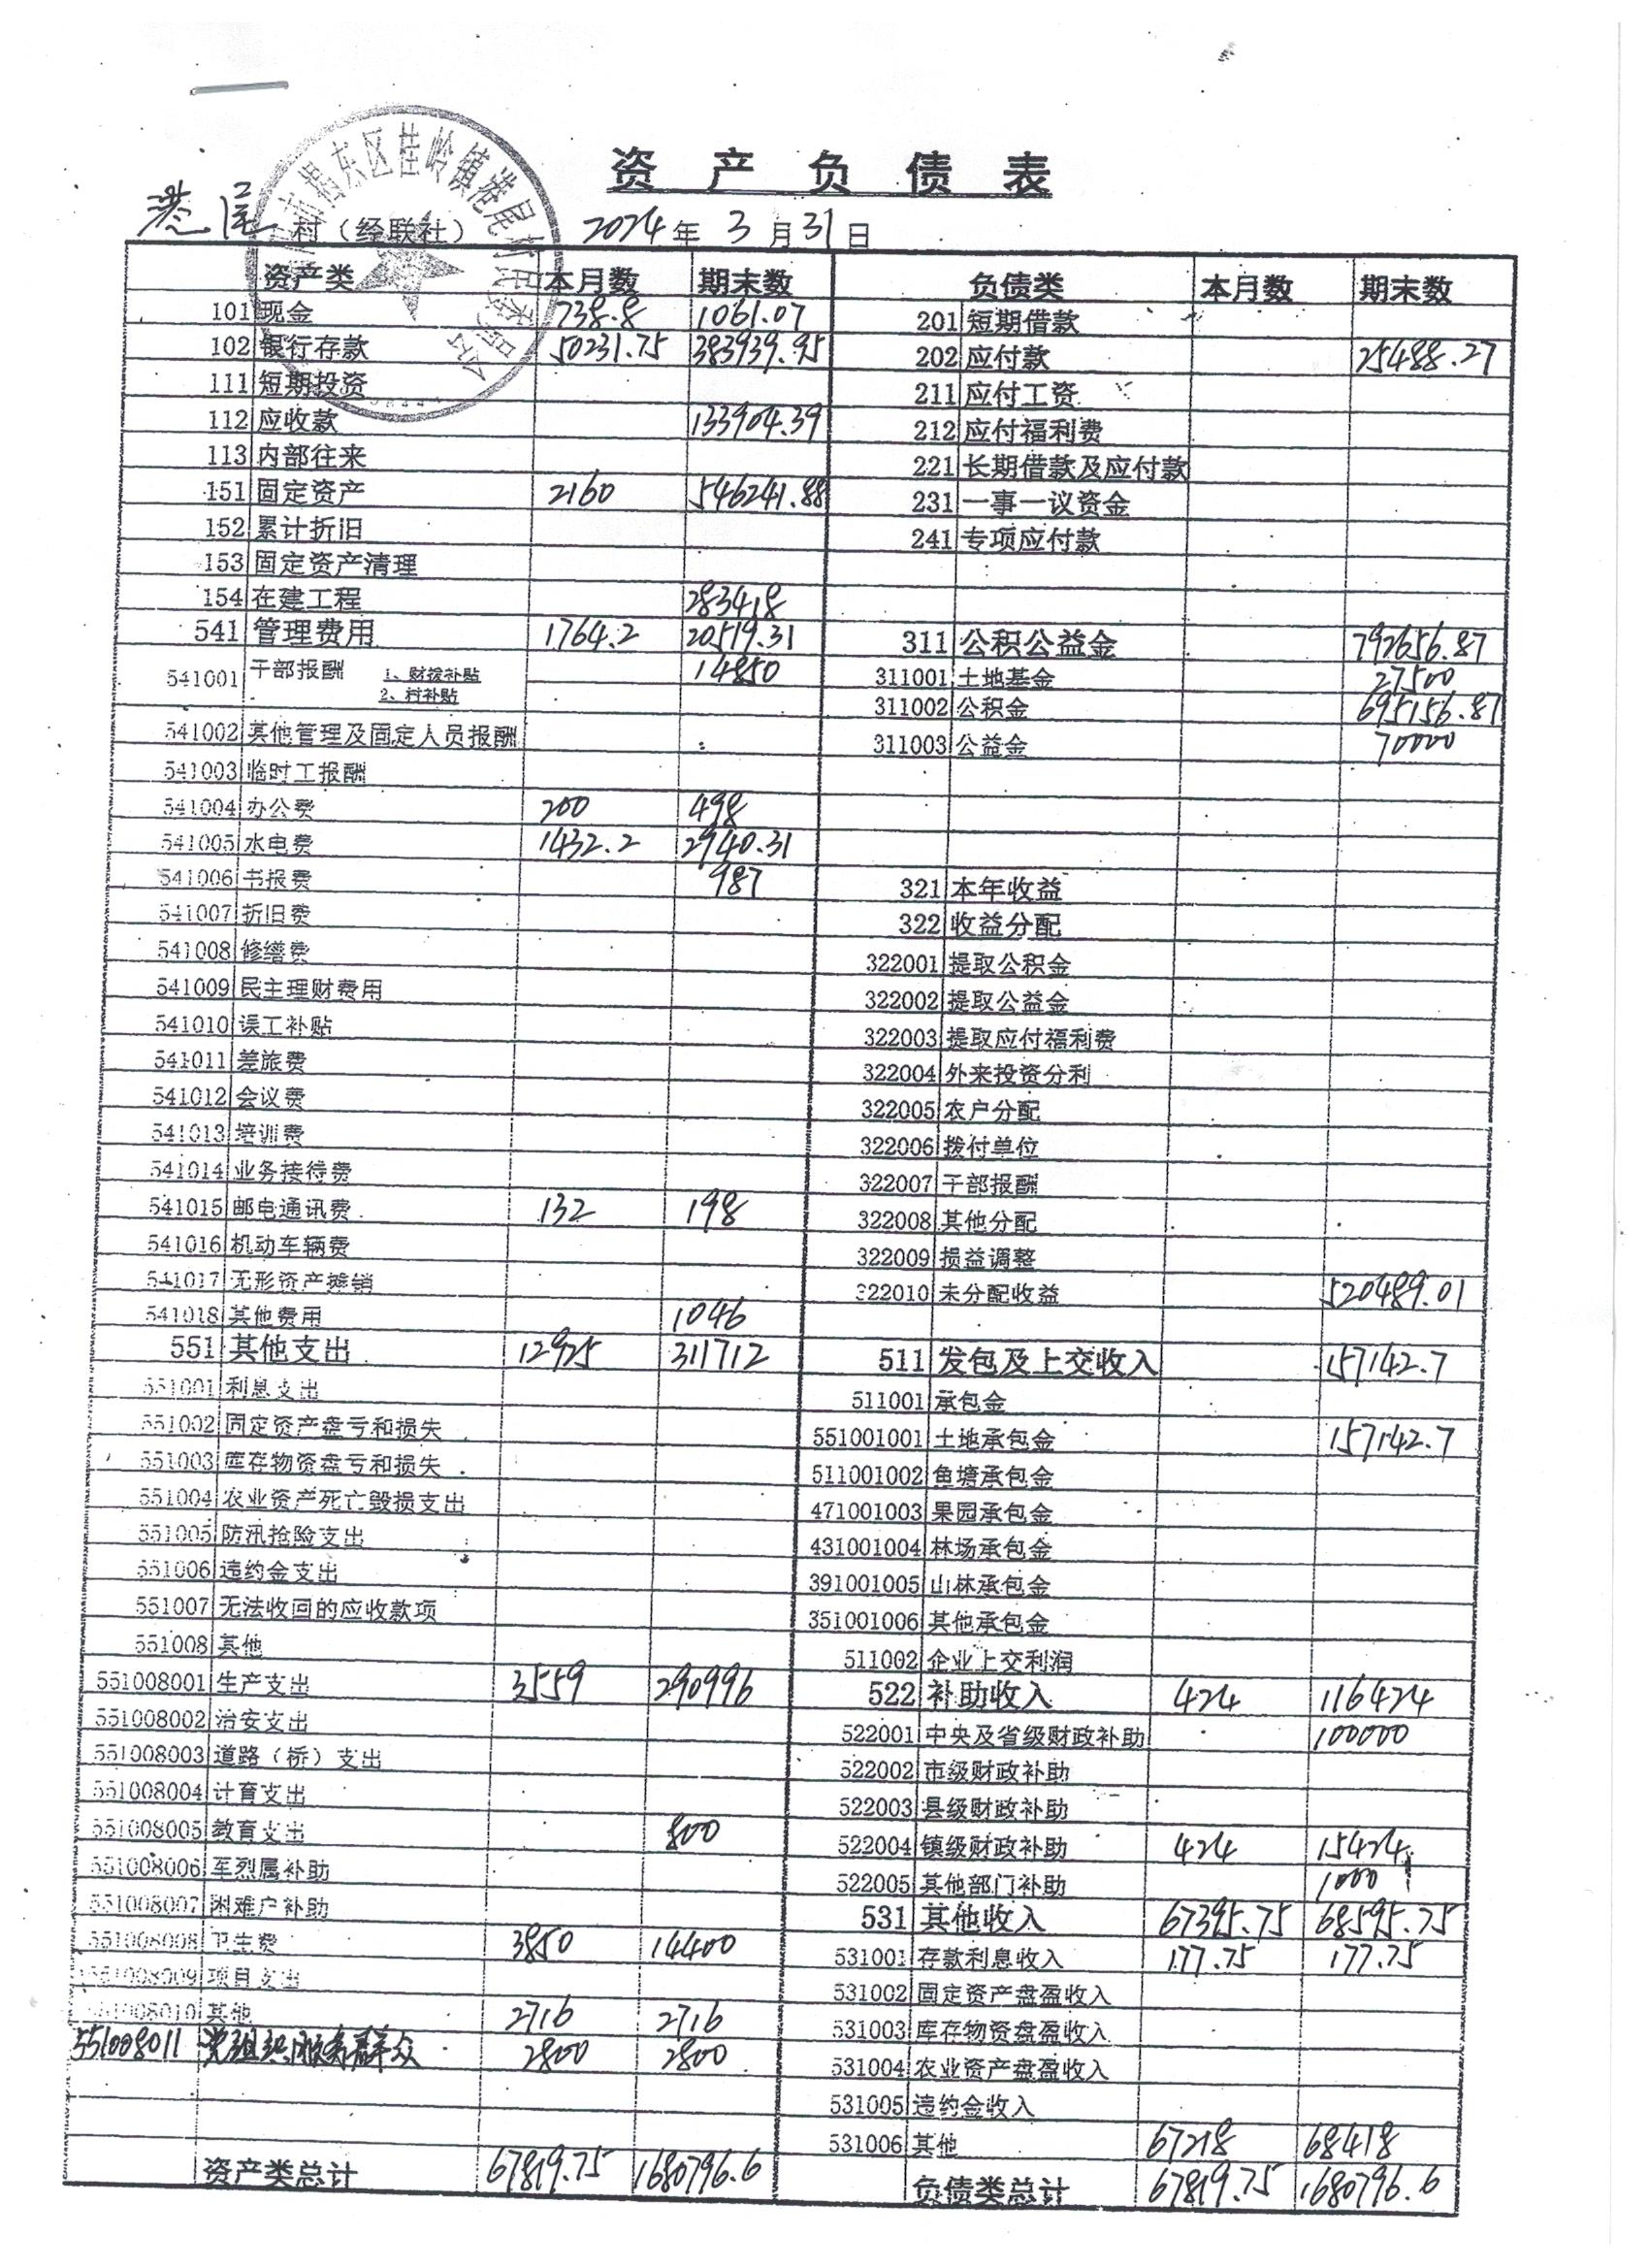 资产负债表
港尾村（经联社） 2024年3月31日
市揭东区桂岭镇港尾村民委员会
资产类 本月数 期末数 负债类 本月数 期末数
101 现金 738.8 1061.07 201 短期借款
102 银行存款 50231.75 383939.95 202 应付款 25488.27
111 短期投资 211 应付工资
112 应收款 133904.39 212 应付福利费
113 内部往来 221 长期借款及应付款
151 固定资产 2160 546241.88 231 一事一议资金
152 累计折旧 241 专项应付款
153 固定资产清理
154 在建工程 283418
541 管理费用 1764.2 20519.31 311 公积公益金 792656.87
541001 干部报酬 1、财拨补贴 14850 311001 土地基金 27500
2、村补贴 311002 公积金 695156.87
541002 其他管理及固定人员报酬 311003 公益金 70000
541003 临时工报酬
541004 办公费 200 498
541005 水电费 1432.2 2940.31
541006 书报费 987 321 本年收益
541007 折旧费 322 收益分配
541008 修缮费 322001 提取公积金
541009 民主理财费用 322002 提取公益金
541010 误工补贴 322003 提取应付福利费
541011 差旅费 322004 外来投资分利
541012 会议费 322005 农户分配
541013 培训费 322006 拨付单位
541014 业务接待费 322007 干部报酬
541015 邮电通讯费 132 198 322008 其他分配
541016 机动车辆费 322009 损益调整
541017 无形资产摊销 322010 未分配收益 520489.01
541018 其他费用 1046
551 其他支出 12925 311712 511 发包及上交收入 157142.7
551001 利息支出 511001 承包金
551002 固定资产盘亏和损失 551001001 土地承包金 157142.7
551003 库存物资盘亏和损失 511001002 鱼塘承包金
551004 农业资产死亡毁损支出 471001003 果园承包金
551005 防汛抢险支出 431001004 林场承包金
551006 违约金支出 391001005 山林承包金
551007 无法收回的应收款项 351001006 其他承包金
551008 其他 511002 企业上交利润
551008001 生产支出 3559 290996 522 补助收入 424 116424
551008002 治安支出 522001 中央及省级财政补助 100000
551008003 道路（桥）支出 522002 市级财政补助
551008004 计育支出 522003 县级财政补助
551008005 教育支出 800 522004 镇级财政补助 424 15424
551008006 军烈属补助 522005 其他部门补助 1000
551008007 困难户补助 531 其他收入 67395.75 68595.75
551008008 卫生费 3850 14400 531001 存款利息收入 177.75 177.75
551008009 项目支出 531002 固定资产盘盈收入
551008010 其他 2716 2716 531003 库存物资盘盈收入
551008011 党组织服务群众 2800 2800 531004 农业资产盘盈收入
531005 违约金收入
531006 其他 67218 68418
资产类总计 67819.75 1680796.6 负债类总计 67819.75 1680796.6